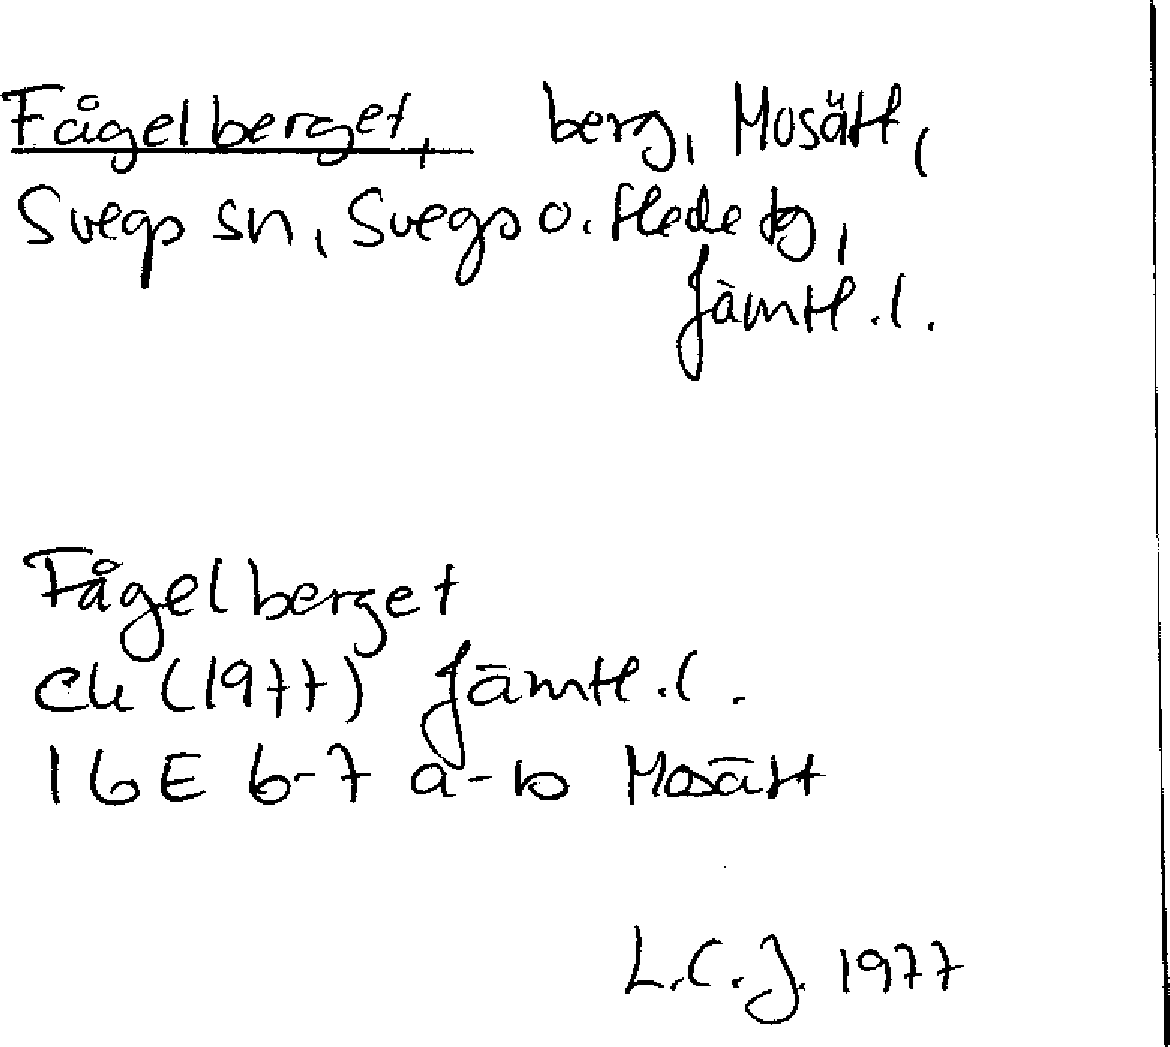 Fågelberget, berg, Mosätt,
Svegs sn, Svegs o. Hede tg,
Jämtl. l.
Fågelberget
Ek (1977) Jämtl. l.
16E 6-7 a-b Mosätt
L.C.J. 1977